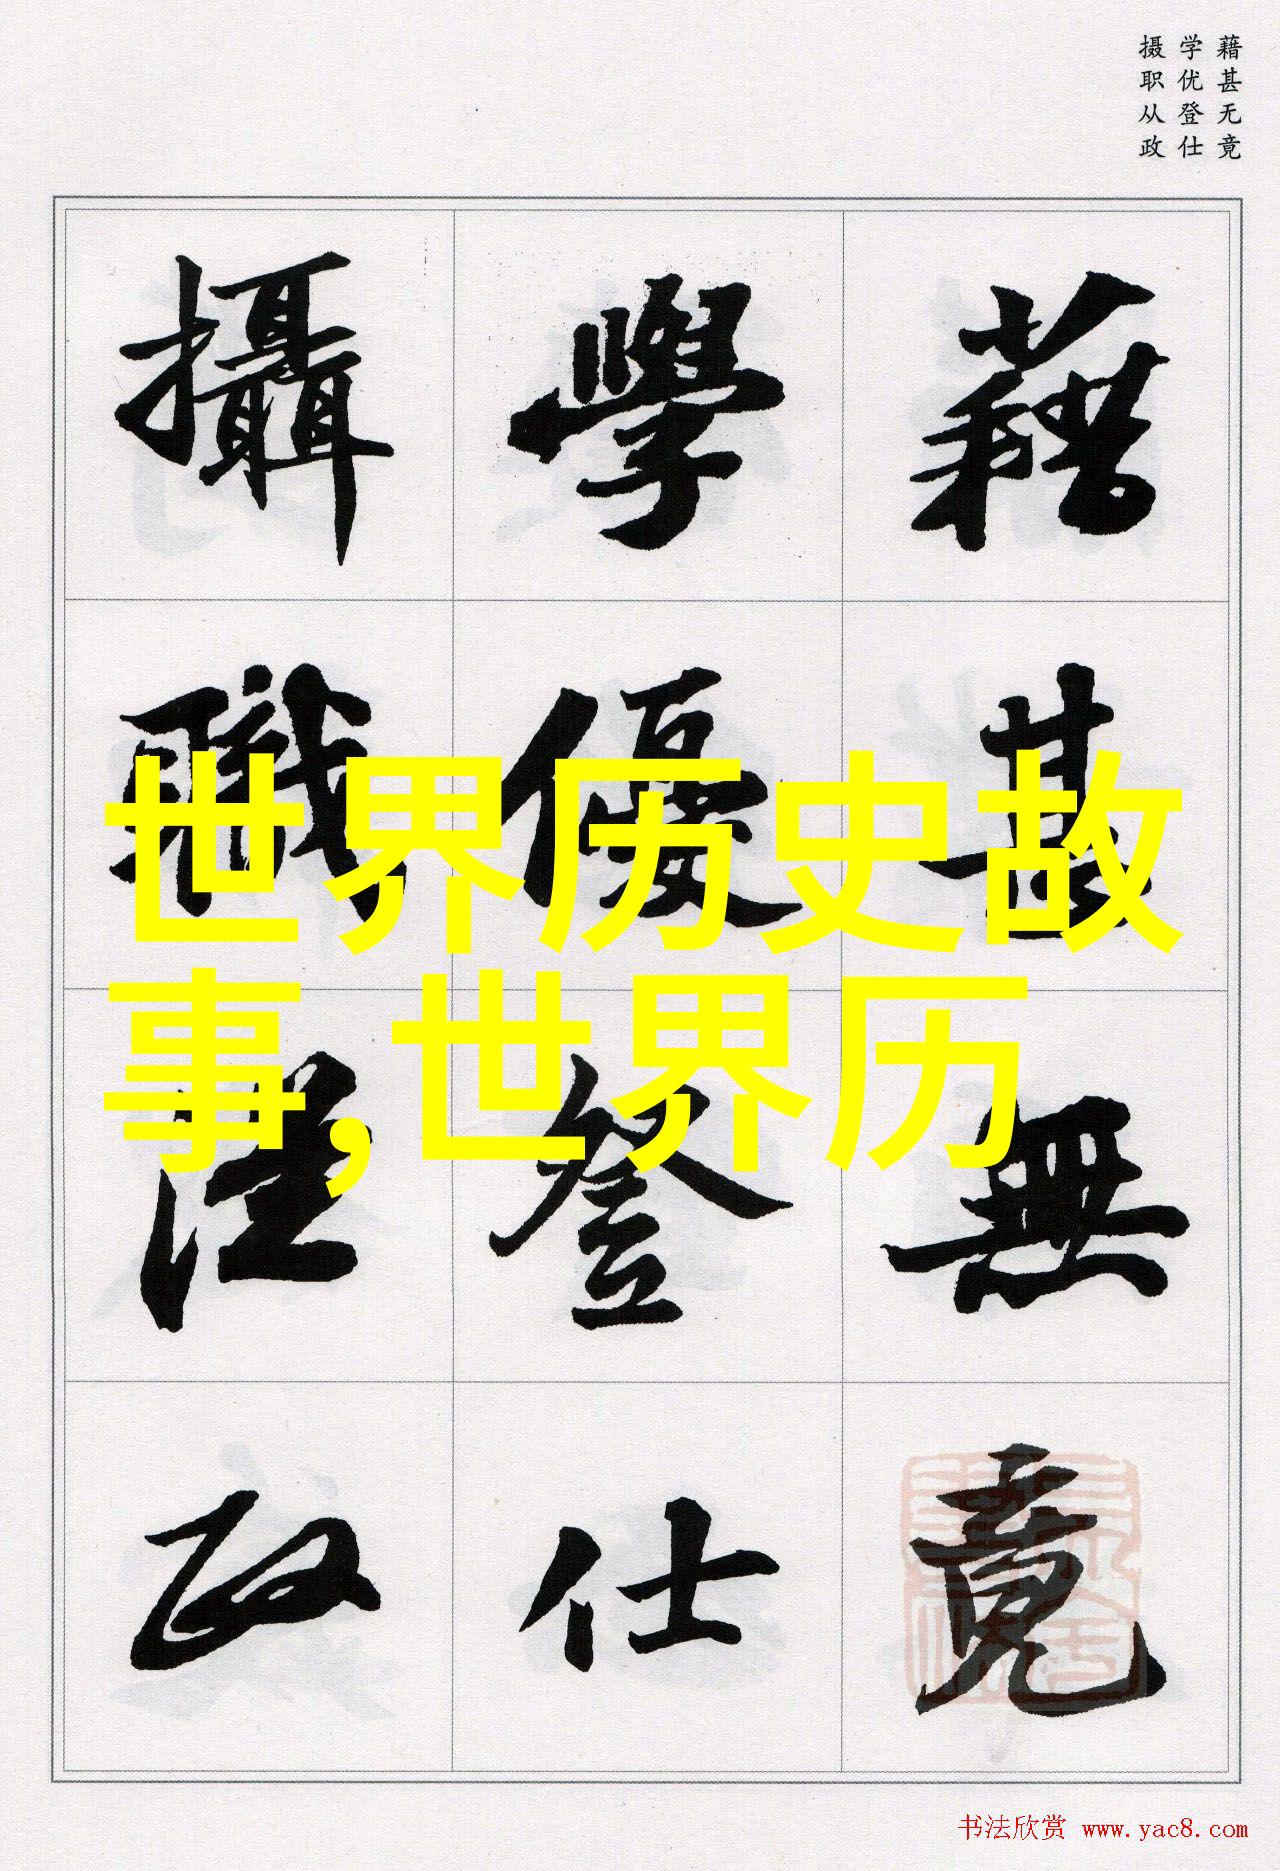 藉甚无竟
学优登仕
摄职从政
藉甚無竟
學優登仕
攝職從政
世界历史故
事,世界历
书法欣赏 www.yac8.com